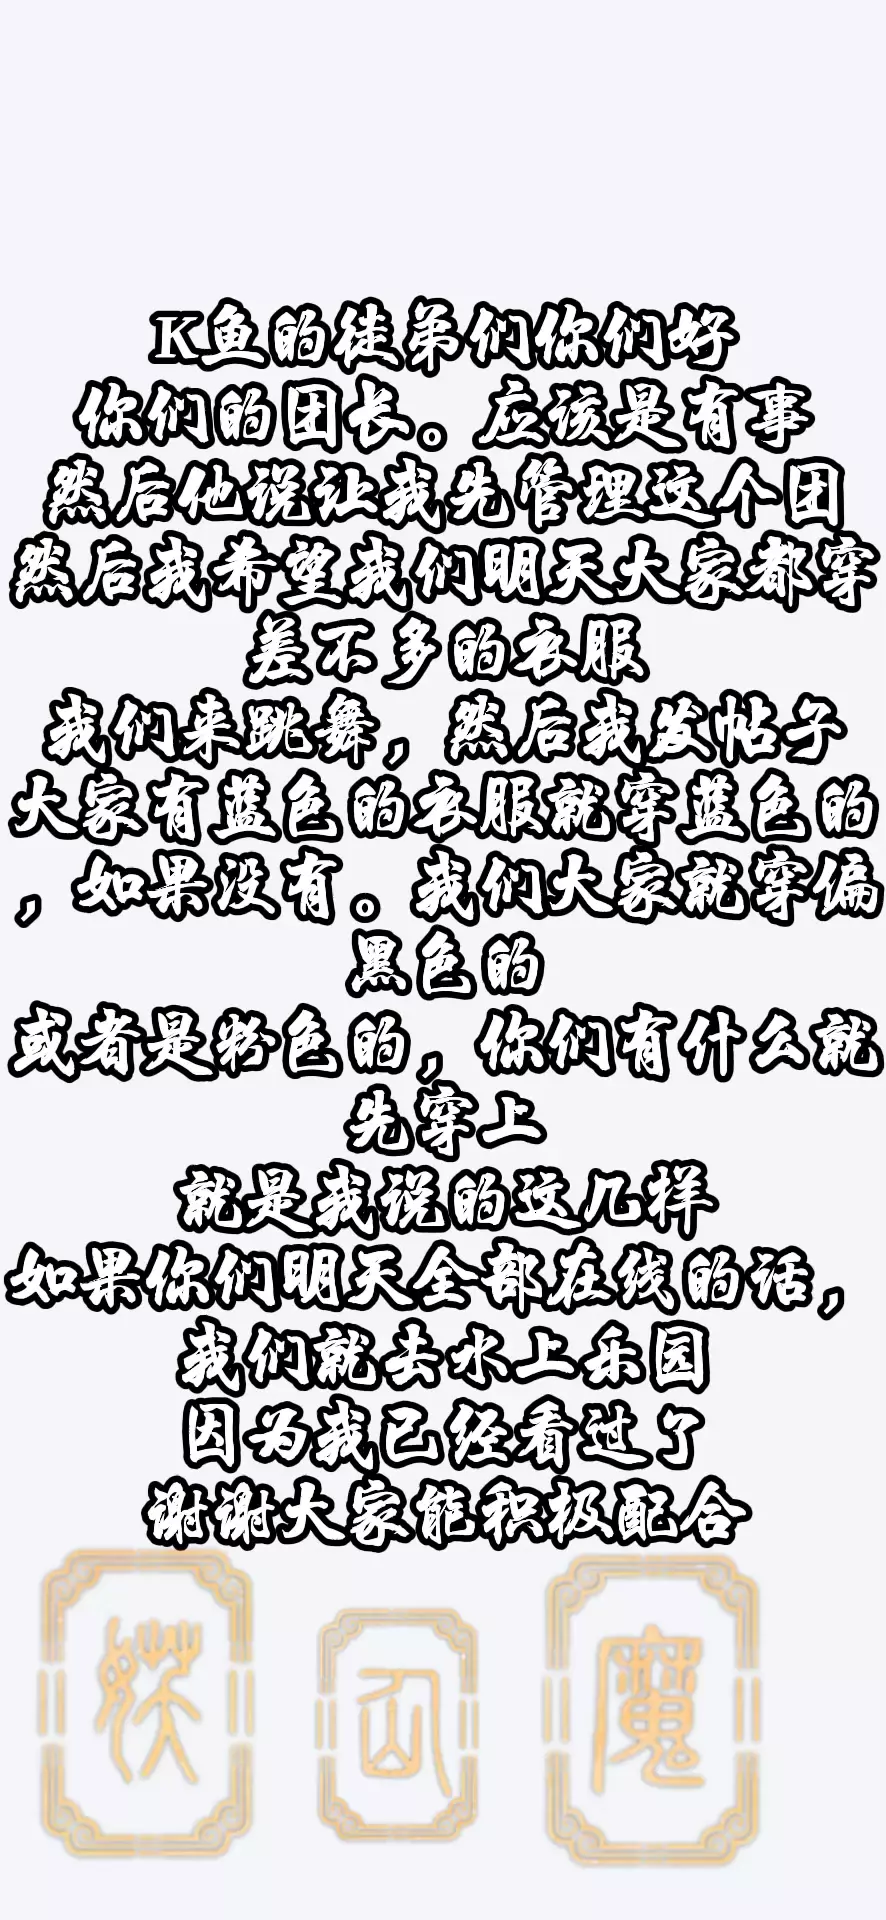 K鱼的徒弟们你们好
你们的团长。应该是有事
然后他说让我先管理这个团
然后我希望我们明天大家都穿
差不多的衣服
我们来跳舞，然后我发帖子
大家有蓝色的衣服就穿蓝色的
，如果没有。我们大家就穿偏
黑色的
或者是粉色的，你们有什么就
先穿上
就是我说的这几样
如果你们明天全部在线的话，
我们就去水上乐园
因为我已经看过了
谢谢大家能积极配合
魔